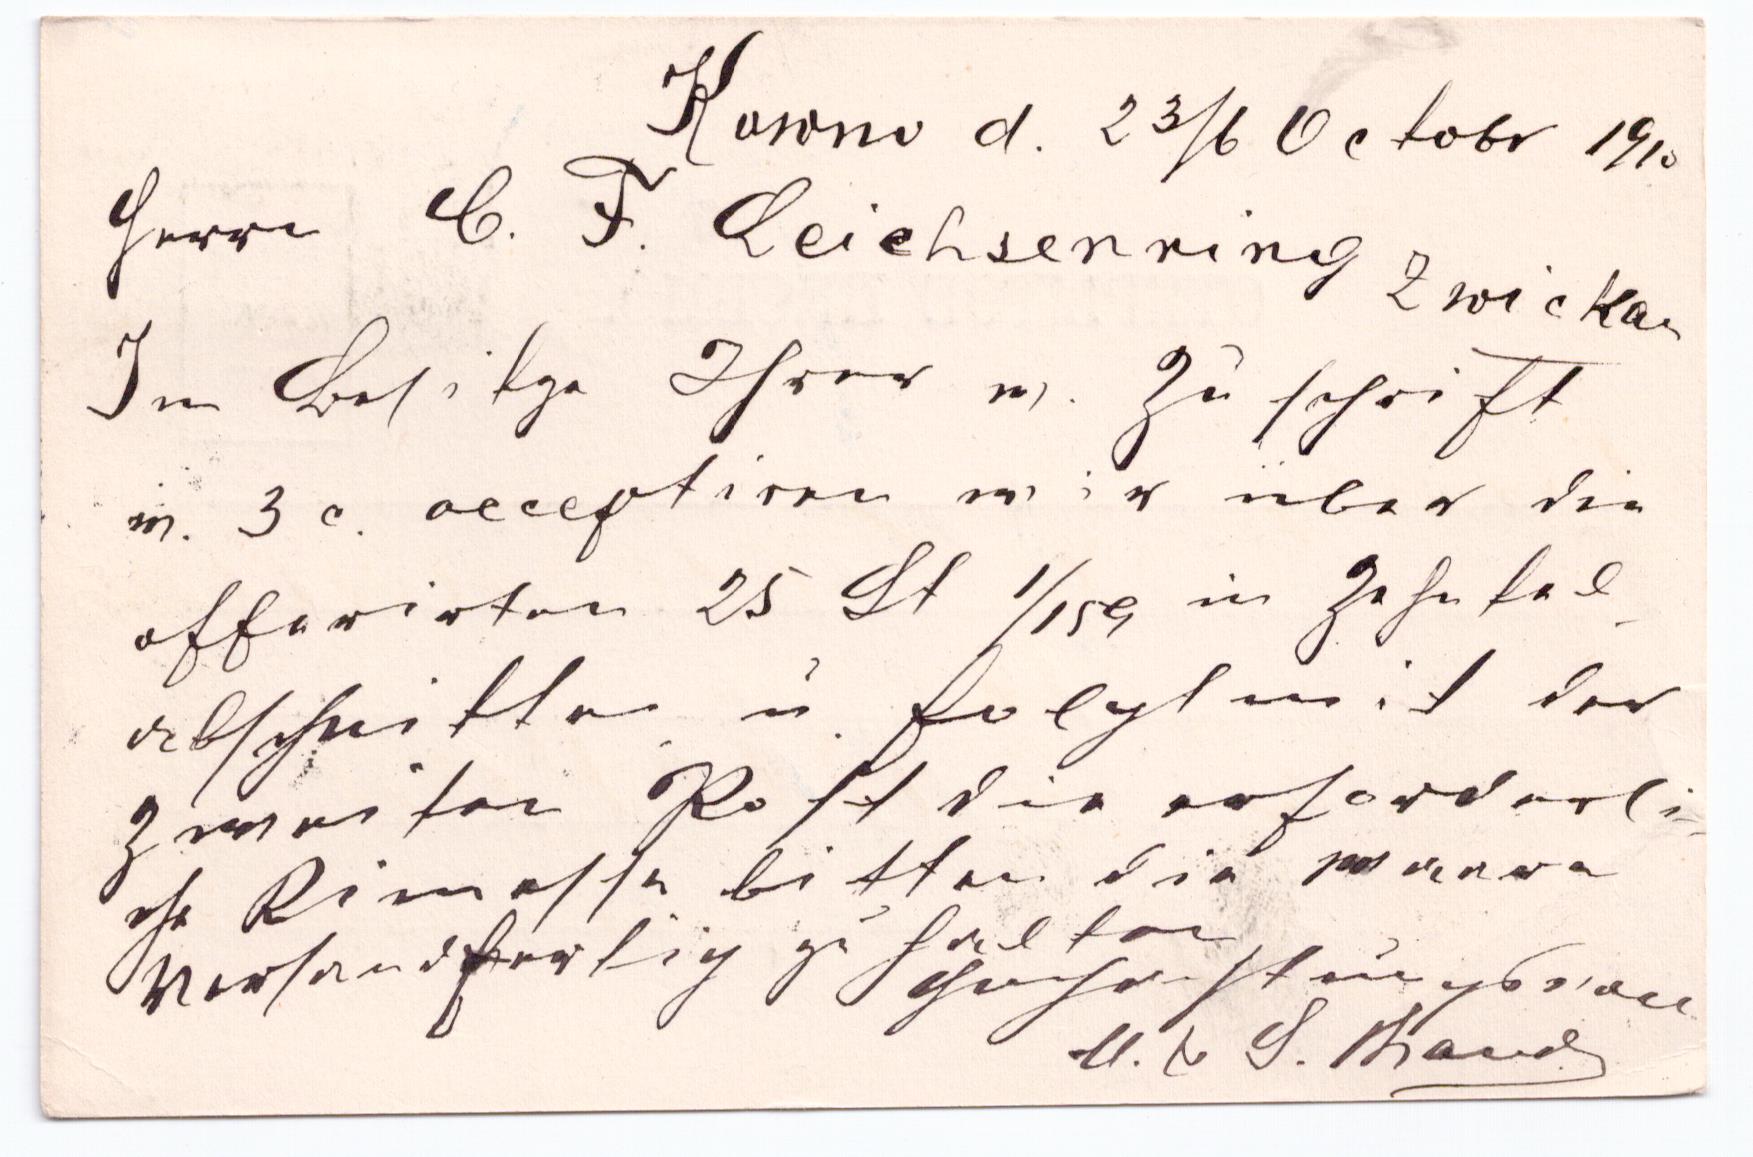 Kowno d. 23/6 October 1910
Herrn C. F. Leichsenring Zwickau
Im Besitze Ihrer w. Zuschrift
v. 3 c. acceptiren wir über die
offerirten 25 St 1/159 in Zehntel-
abschnitten u. folgt mit der
zweiten Post die erforderli-
che Rimesse bitten die Waare
Versandfertig zu halten
Hochachtungsvoll
M. & S. Brauds